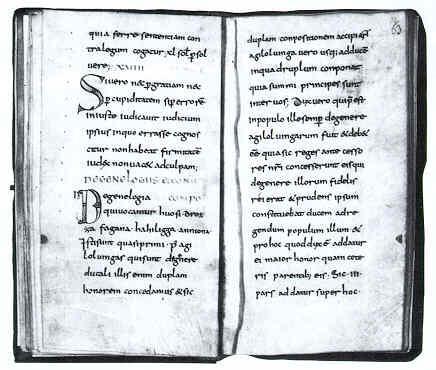 quia ferre sententiam con
tra legem cogatur xl sol p sol
vere;
Si vero nec p gratiam nec
p cupiditatem sup errore
iniusto iudicavit iudicium
ipsius inquo errasse cognos
citur non habeat firmitate
iudex non vacet adculpam;
DE GENELOGIIS
De genelogia
qui vocantur huosi droz
za fagana hahiligga anniona
Isti sunt quasi primi p agi
lolvingas qui sunt de genere
ducali illis enim duplam
honorem concedamus & sic
63
duplam conpositionem accipiant
agilolvinga vero usq; adducem
inquadruplum componat
quia summi principes sunt
inter vos; Dux vero qui p est
inpopulo ille semp degenere
agilolvingarum fuit & deb&
ee quia sic reges ante cesso
res nri concesserunt eis qui
degenere illorum fidelis
rei erat & prudens ipsum
constituebat ducem adre
gendum populum illum &
pro hoc quod dux e addatur
ei maior honor quam cete
ris parentib; eis. Sic III
pars addatur super hoc.